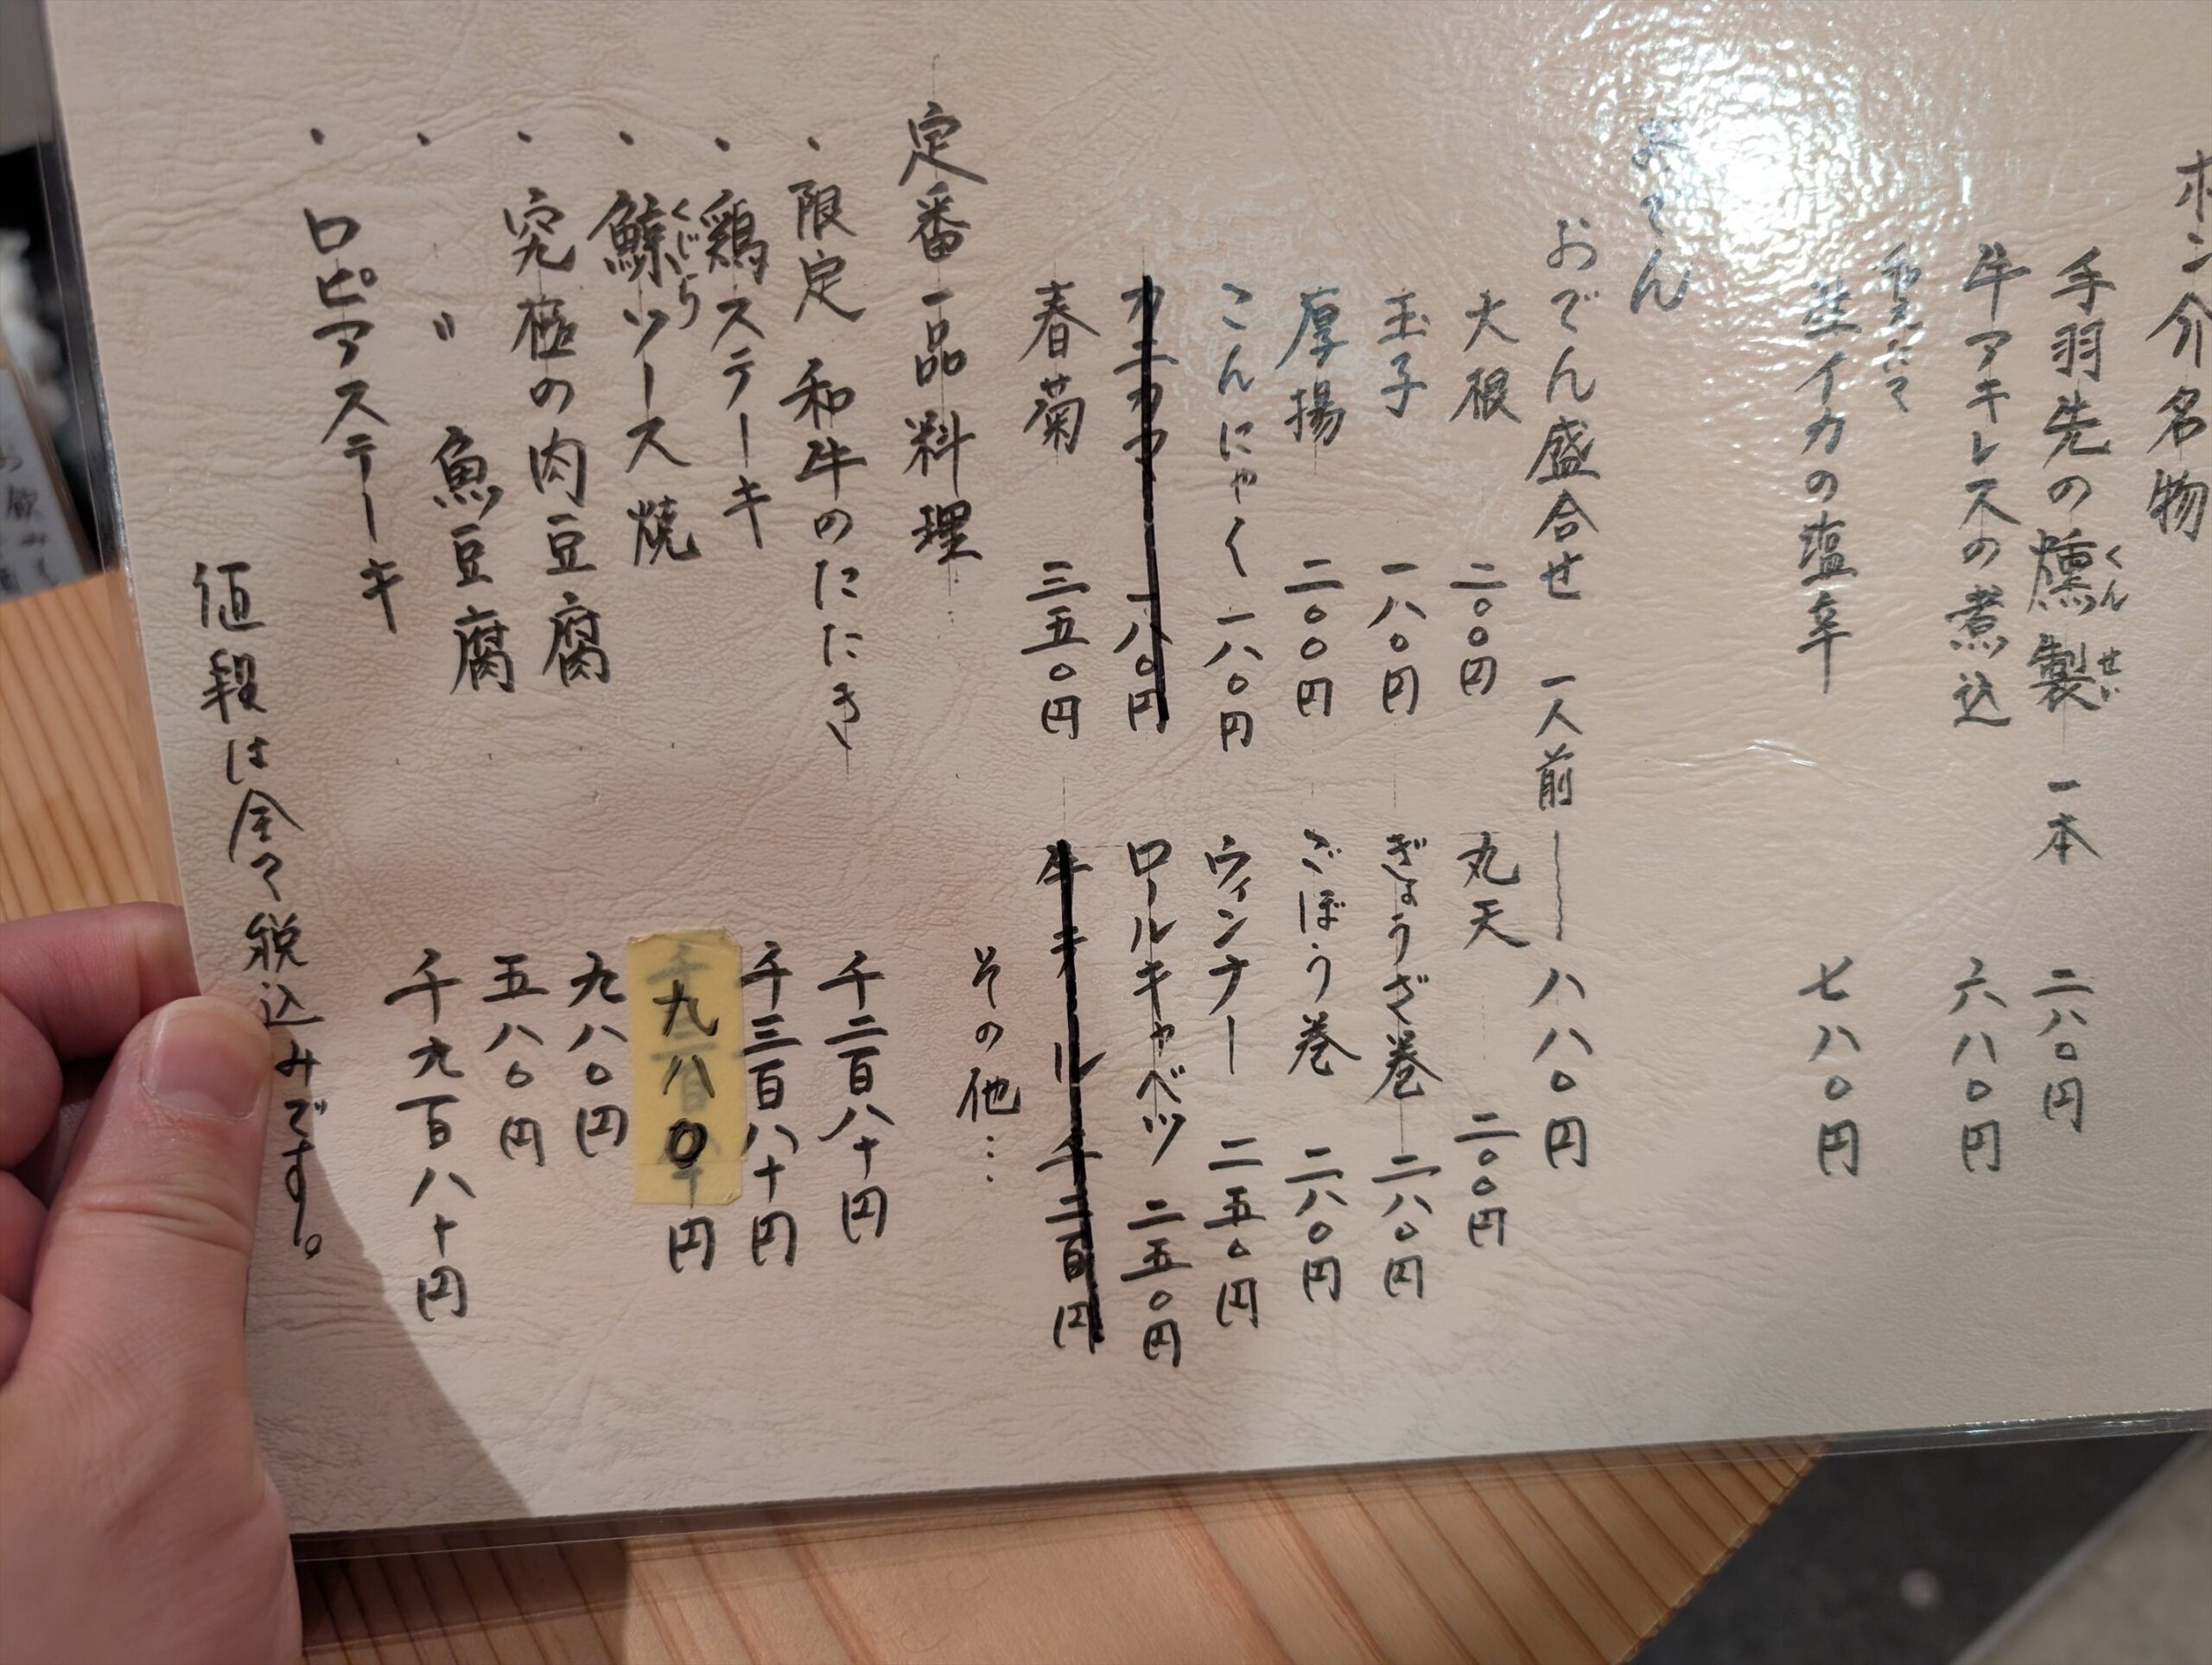 ポン介名物
手羽先の燻製 一本 二八〇円
くんせい
牛アキレスの煮込 六八〇円
生イカの塩辛 七八〇円
おでん
おでん盛合せ 一人前 ― 八八〇円
大根 二〇〇円 丸天 二〇〇円
玉子 一八〇円 ぎょうざ巻 二八〇円
厚揚 二〇〇円 ごぼう巻 二八〇円
こんにゃく 一八〇円 ウィンナー 二五〇円
一八〇円 ロールキャベツ 二五〇円
春菊 三五〇円 牛テール 千二百円
その他…
定番一品料理
・限定 和牛のたたき 千二百八十円
・鶏ステーキ 千三百八十円
・鯨ソース焼 九八〇円
くじら
・究極の肉豆腐 九八〇円
・〃 魚豆腐 五八〇円
・ロピアステーキ 千九百八十円
値段は全て税込みです。